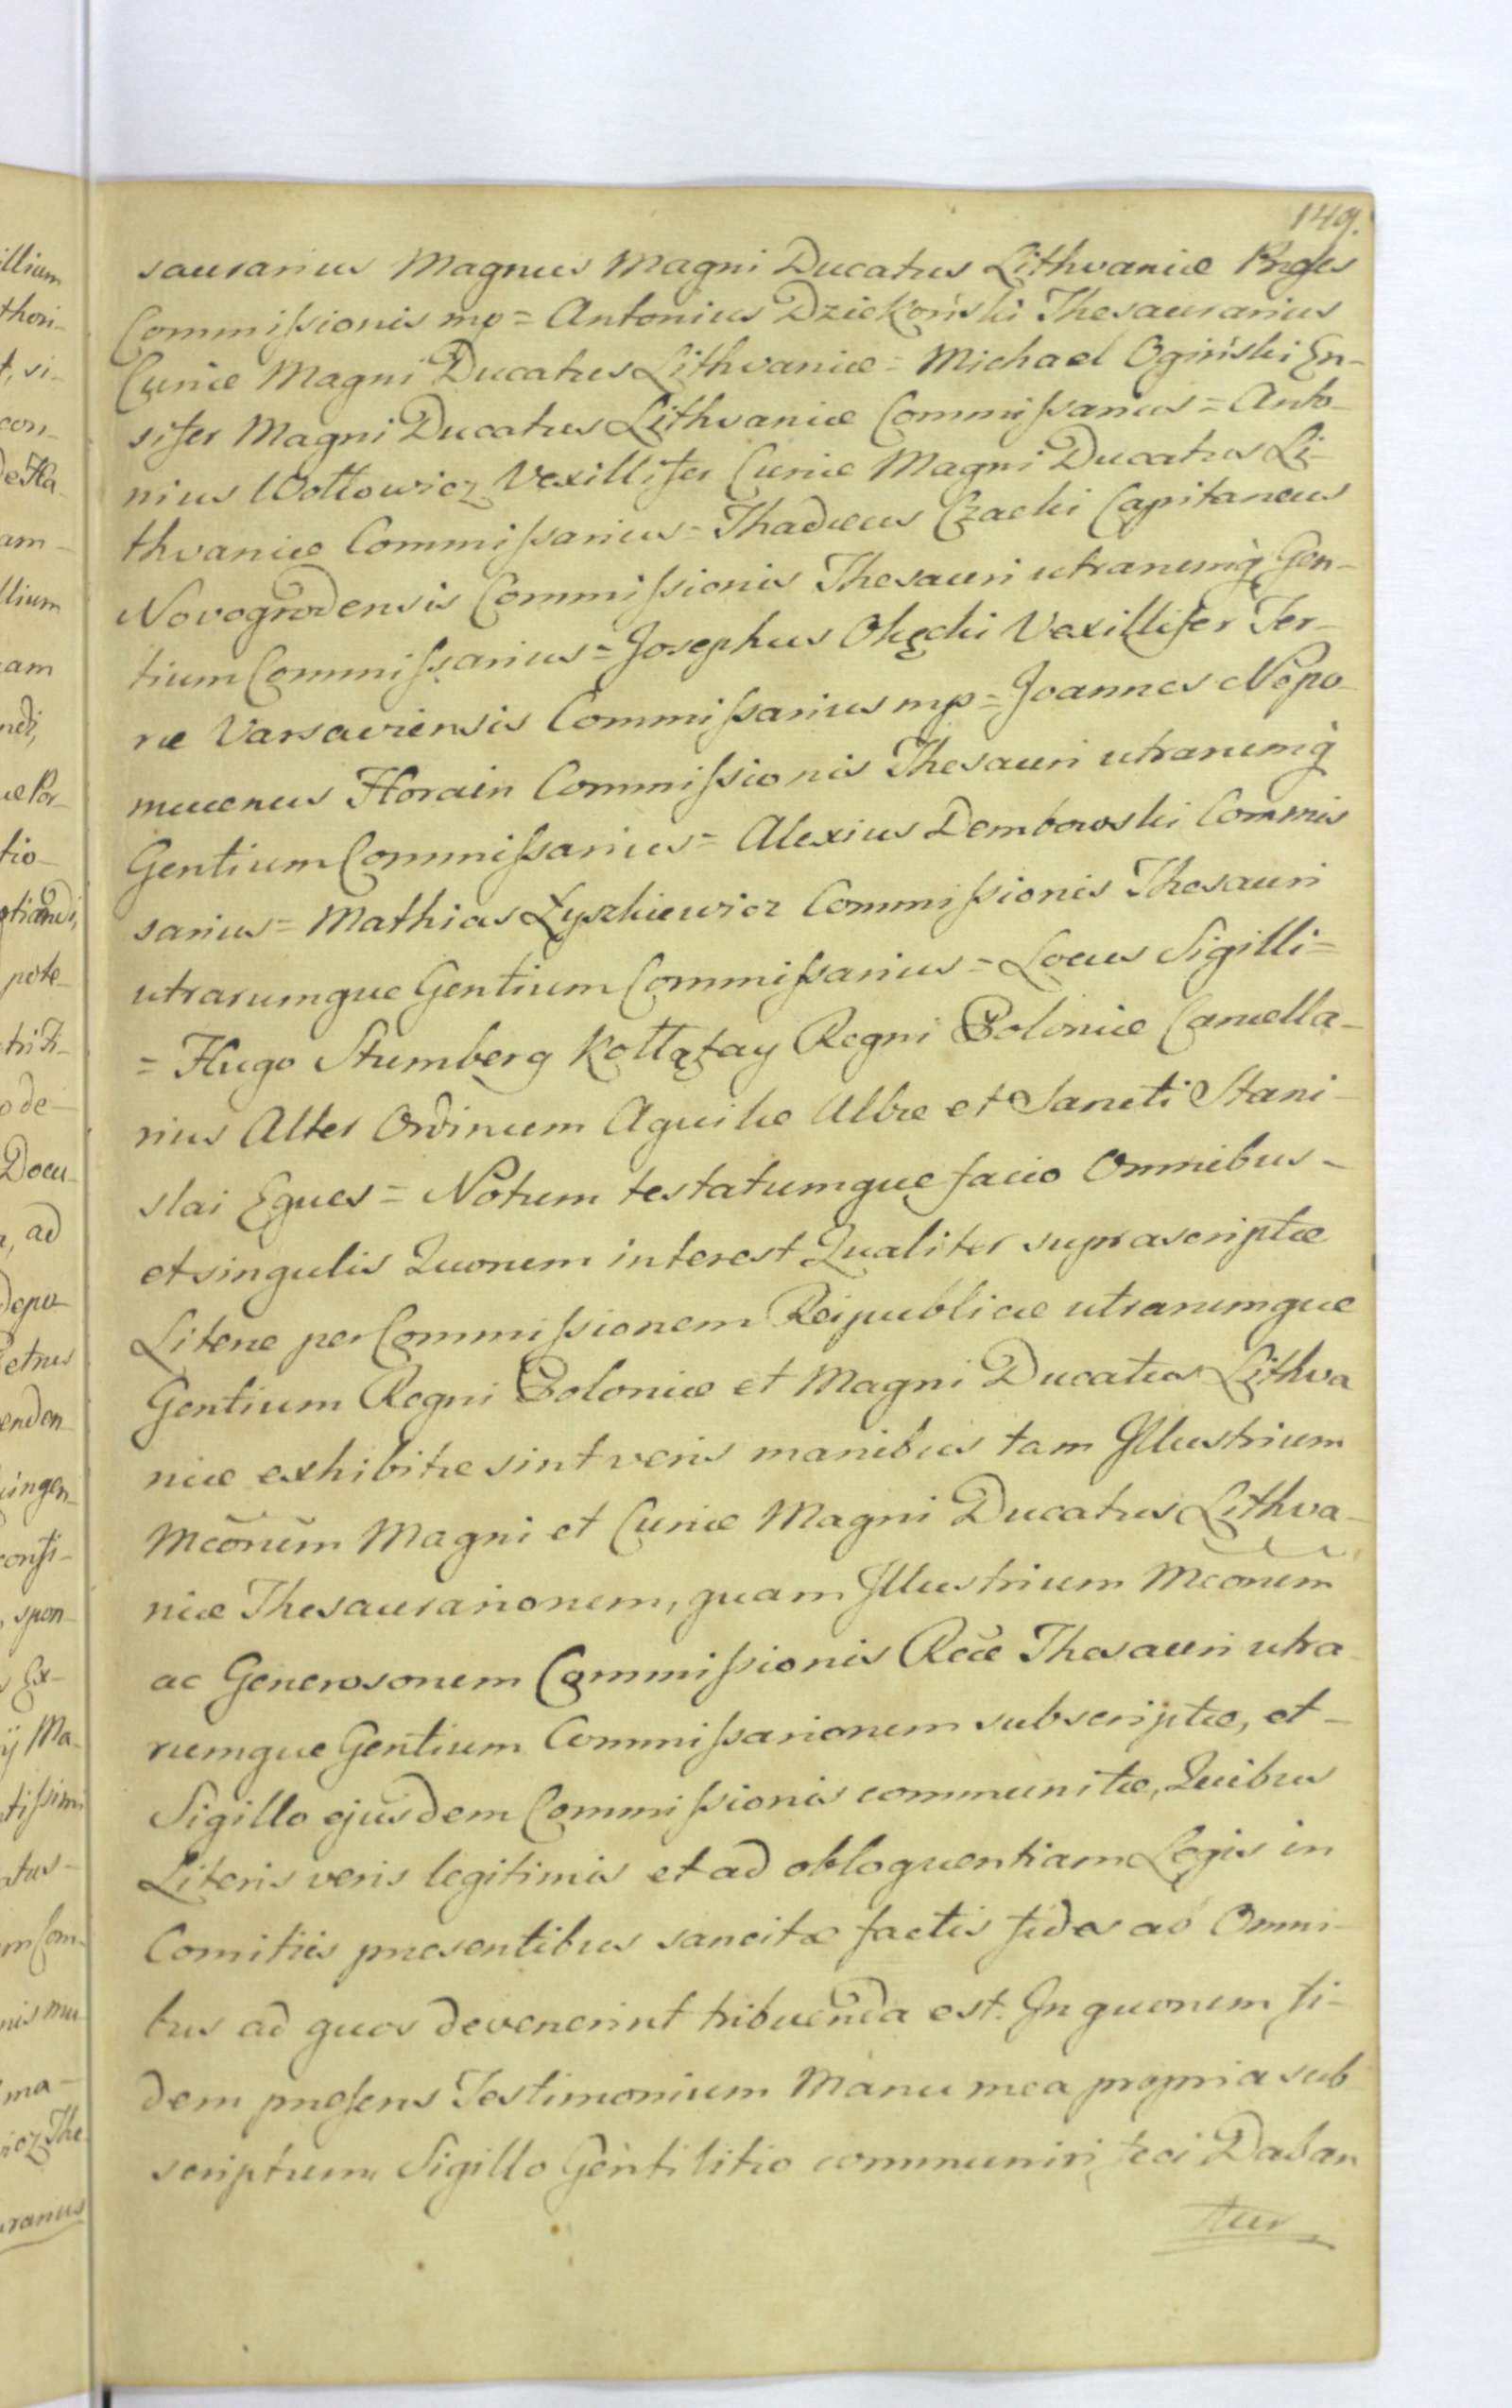 149.
saurarius Magnus Magni Ducatus Lithvaniæ Prses
Commissionis mp = Antonius Dziekoński Thesaurarius
Curiæ Magni Ducatus Lithvaniæ = Michael Ogiński En-
sifer Magni Ducatus Lithvaniæ Commissarius = Anto-
nius Wołłowicz Vexillifer Curiæ Magni Ducatus Li-
thvaniæ Commissarius = Thadæus Czacki Capitaneus
Novogrodensis Commissionis Thesauri utrarumq̀ Gen-
tium Commissarius = Josephus Okęcki Vexillifer Ter-
ræ Varsaviensis Commissarius mp = Joannes Nepo
mucenus Horain Commissionis Thesauri utrarumq̀
Gentium Commissarius = Alexius Dembowski Commis
sarius = Mathias Łyszkiewicz Commissionis Thesauri
utrarumque Gentium Commissarius = Locus Sigilli =
= Hugo Stumberg Kołłątay Regni Poloniæ Cancella-
rius Alter Ordinum Aquilæ Albæ et Sancti Stani-
slai Eques = Notum testatumque facio Omnibus -
et singulis Quorum interest Qualiter suprascriptæ
Literæ per Commissionem Reipublicæ utrarumque
Gentium Regni Poloniæ et Magni Ducatus Lithva
niæ exhibitæ sint veris manibus tam Illustrium
Mcorum Magni et Curiæ Magni Ducatus Lithva-
niæ Thesaurariorum, quam Illustrium Mcorum
ac Generosorum Commissionis Rcæ Thesauri utra
rumque Gentium Commissariorum subscriptæ, et -
Sigillo ejusdem Commissionis communitæ, Quibus
Literis veris legitimis et ad obloquentiam Legis in
Comitiis præsentibus sancitæ factis fides ab Omni-
bus ad quos devenerint tribuenda est. In quorum fi-
dem præsens Testimonium Manu mea propria sub
scriptum Sigillo Gentilitio communiri feci Daban
tur